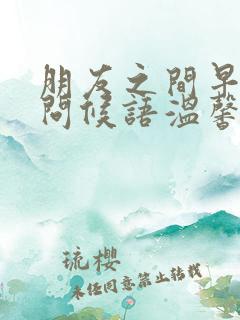 朋友之間早
問候語溫馨
琉櫻
未经同意禁止转载